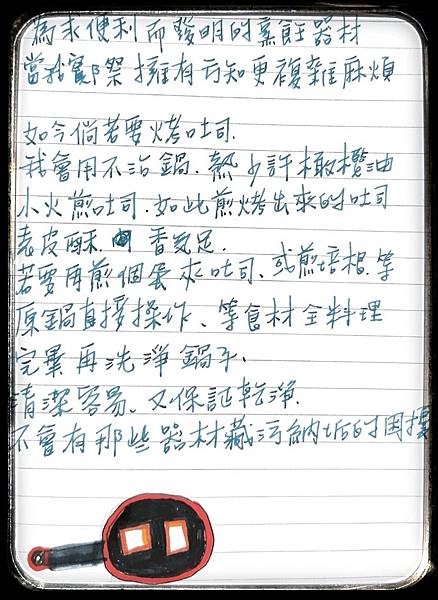 為求便利而發明的烹飪器材
當我實際擁有方知更複雜麻煩
如今倘若要烤吐司.
我會用不沾鍋.熱少許橄欖油
小火煎吐司.如此煎烤出來的吐司
表皮酥.內香氣足.
若要再煎個蛋夾吐司、或煎培根.等
原鍋直接操作、等食材全料理
完畢再洗淨鍋子.
清潔容易、又保証乾淨.
不會有那些器材藏污納垢的困擾